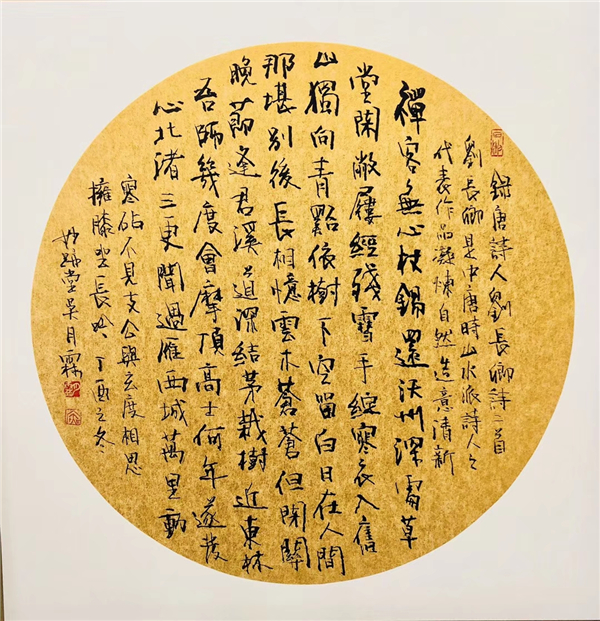 錄唐詩人劉長卿詩二首
劉長卿是中唐時山水派詩人之
代表作品凝煉自然造意清新
禪客無心杖錫還沃州深處草
堂閑敝屨經殘雪手綻寒衣入舊
山獨向青谿依樹下空留白日在人間
那堪別後長相憶雲木蒼蒼但閉關
晚節逢君溪道深結茅栽樹近東林
吾師幾度會摩頂高士何年遂發
心北渚三更聞過雁西城萬里動
寒砧不見支公與玄度相思
擁膝坐長吟丁酉之冬
堂吳月霖